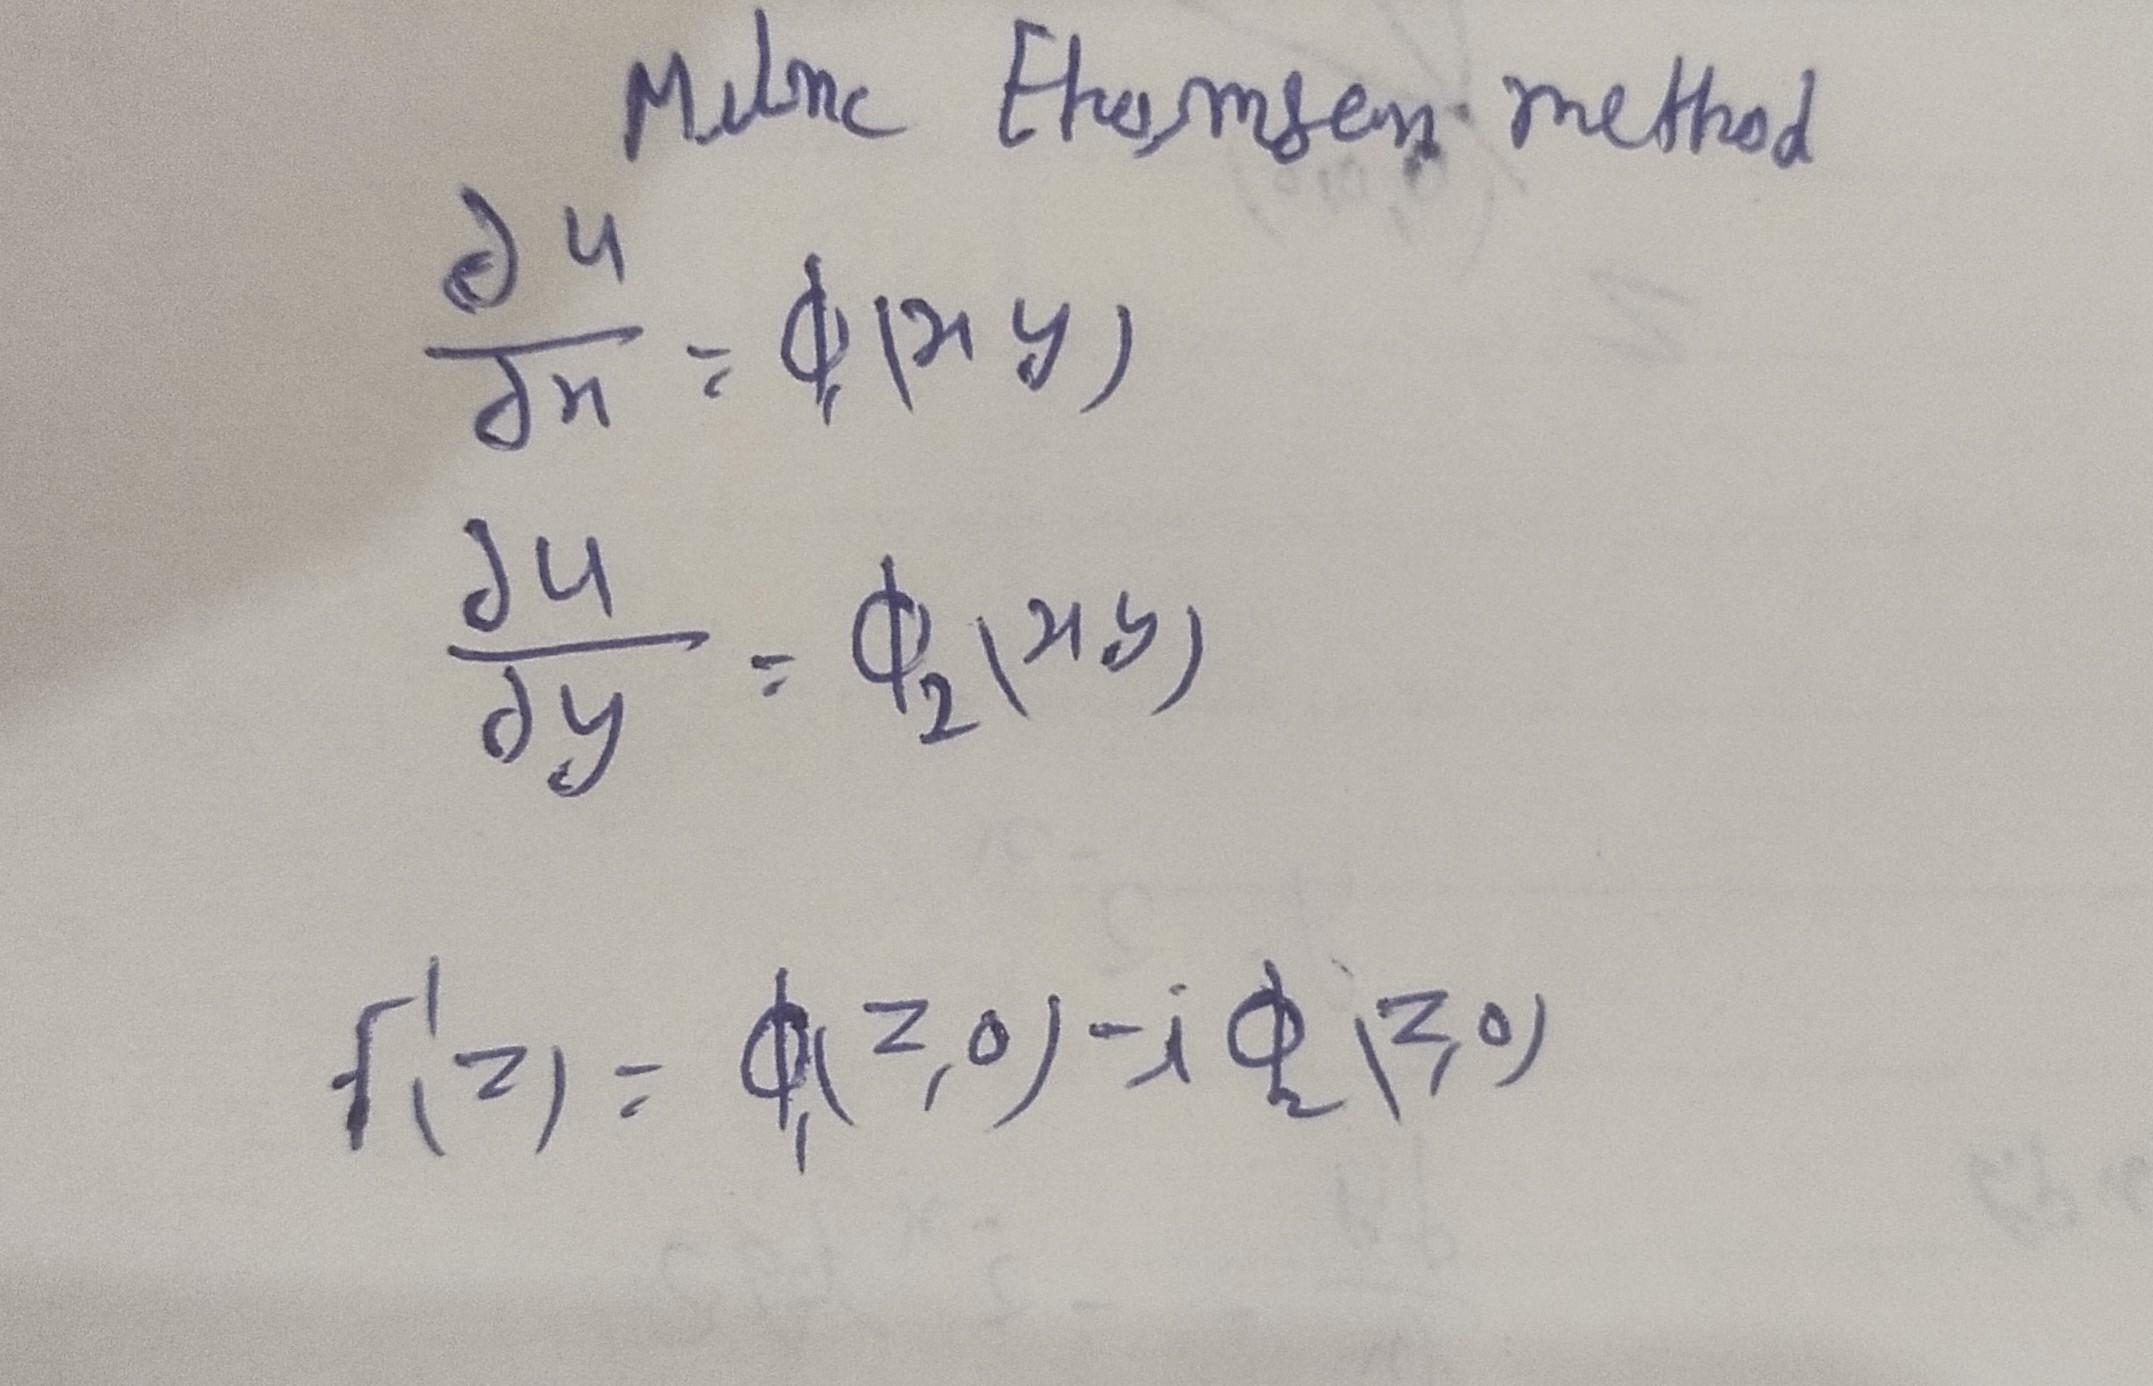 Milne Thomsen method
∂u/∂x = ϕ₁(x y)
∂u/∂y = ϕ₂(x y)
f'(z) = ϕ₁(z,0) - i ϕ₂(z,0)